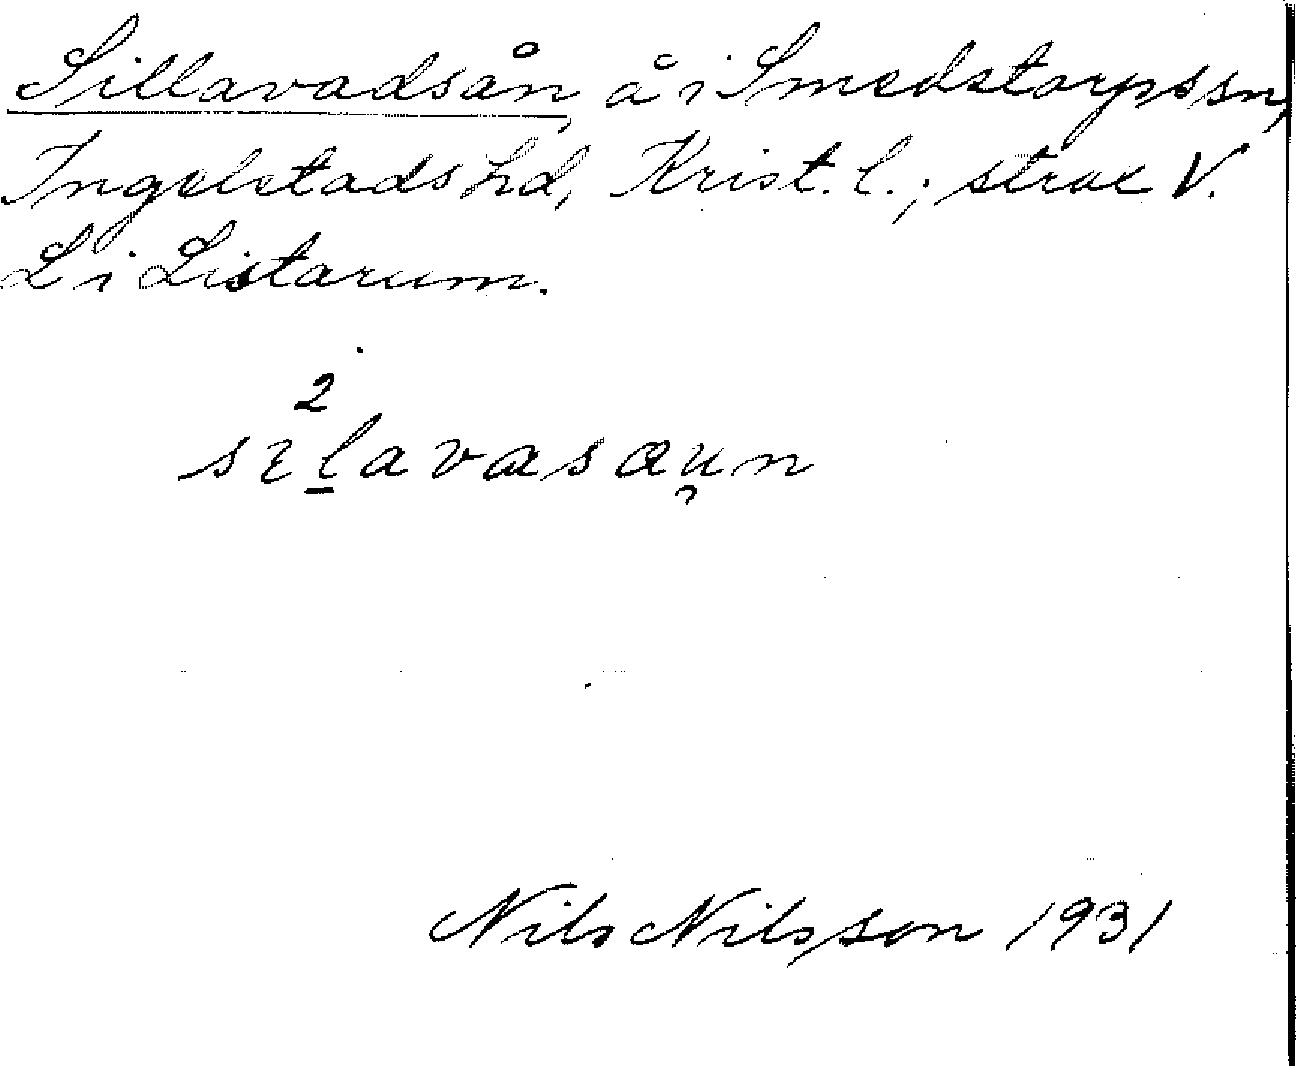 Sillavadsån, å i Smedstorps sn,
Ingelstads hd, Krist. l.; strax V.
L i Listarum.
2
sɪl̲avasaṷn
Nils Nilsson 1931